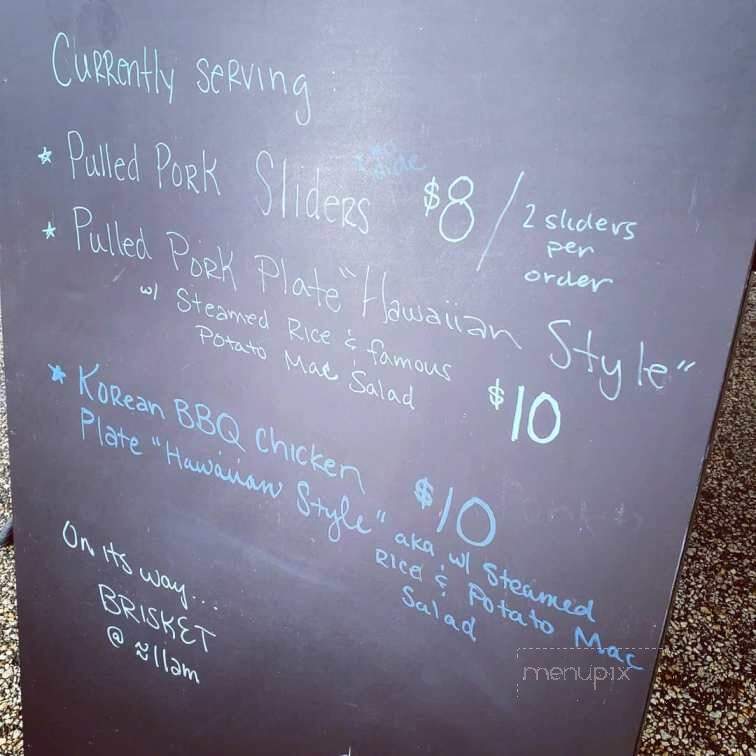 Currently serving
* Pulled Pork Sliders $8 / 2 sliders
per
order
* Pulled Pork Plate "Hawaiian Style"
w/ Steamed Rice & famous
Potato Mac Salad $10
* Korean BBQ Chicken
Plate "Hawaiian Style" $10 aka w/ Steamed
Rice & Potato Mac
Salad
On its way...
BRISKET
@ ≈11am
menupix